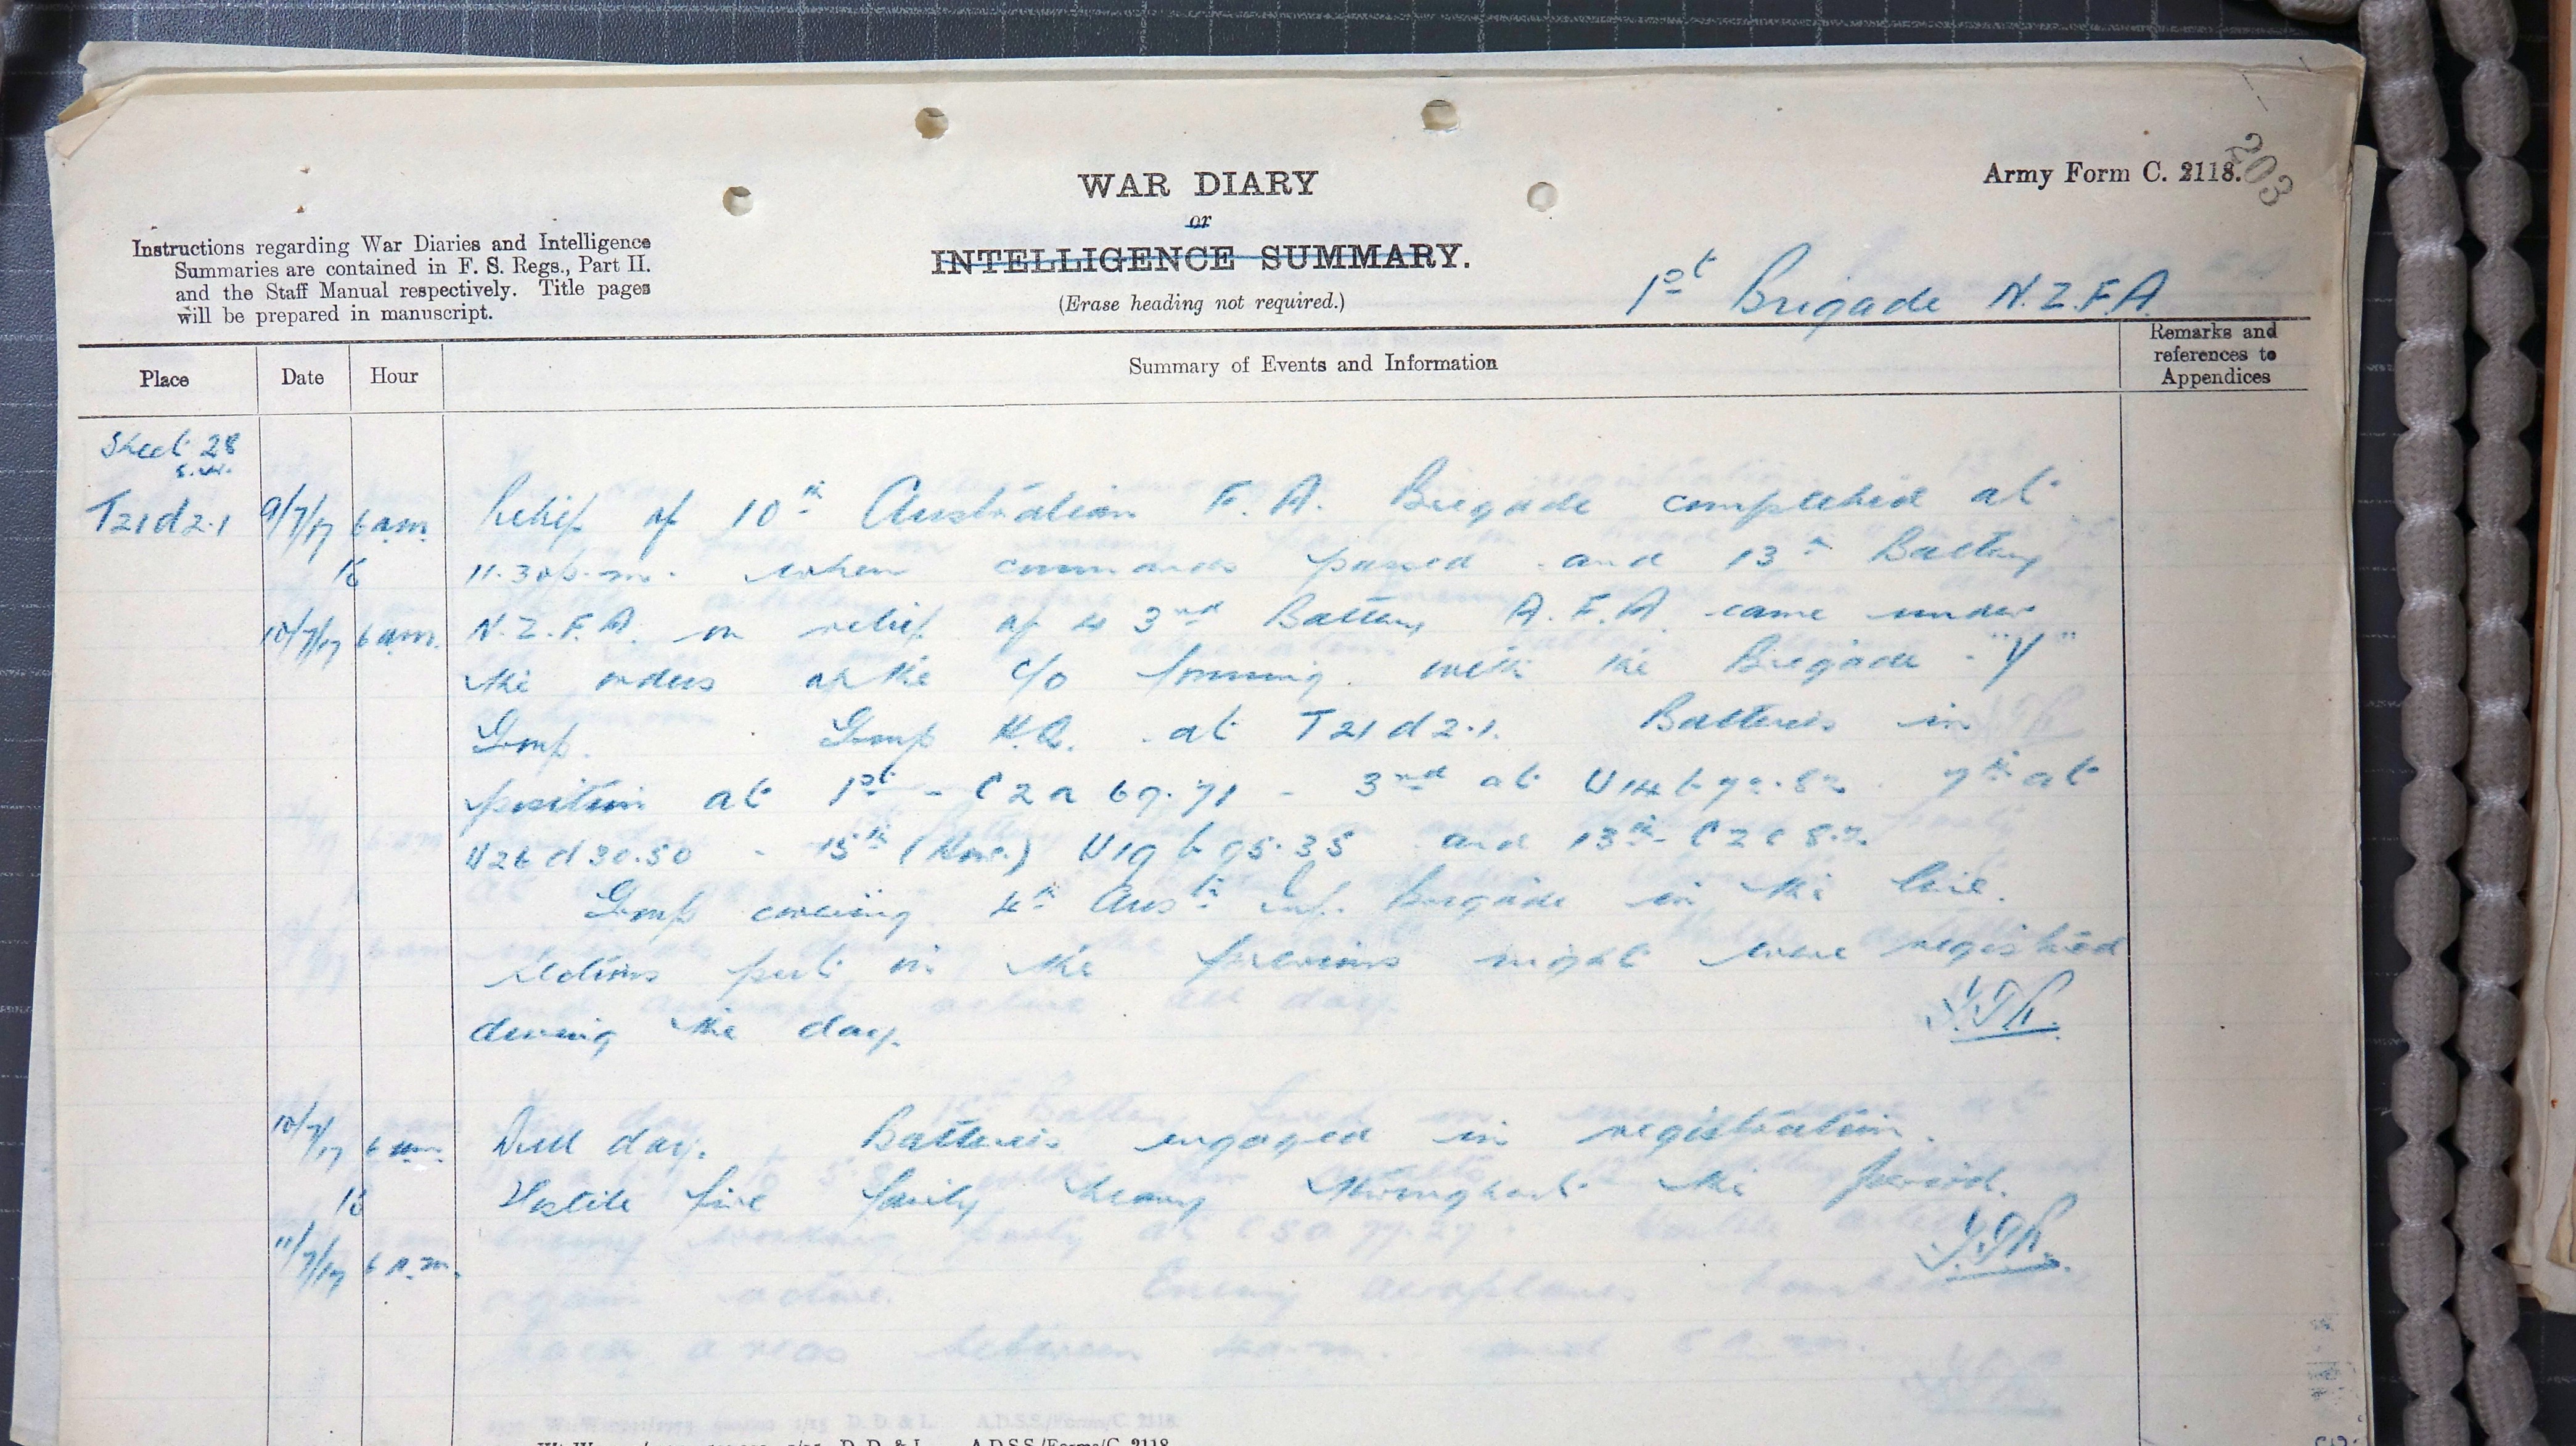 WAR DIARY
or
INTELLIGENCE SUMMARY.
(Erase heading not required.)
Army Form C. 2118.
203
Instructions regarding War Diaries and Intelligence
Summaries are contained in F. S. Regs., Part II.
and the Staff Manual respectively. Title pages
will be prepared in manuscript.
1st Brigade N.Z.F.A.
Place Date Hour Summary of Events and Information Remarks and references to Appendices
Sheet 28
S.W.
T21d2.1 9/7/17 6 am Relief of 10th Australian F.A. Brigade completed at
to 11.30 p.m. when command passed and 13th Battery
10/7/17 6 am. N.Z.F.A. in relief of 43rd Battery A.F.A. came under
the orders of the C/O forming with the Brigade "Y"
Group. Group H.Q. at T21d2.1. Batteries in
position at 1st - C2a 69.71 - 3rd at U14b 79.82. 7th at
U26d30.50 - 15th (How.) U19b95.35 and 13th - C2c8.7.
Group covering 4th Austn Inf. Brigade in the line.
Sections put in the previous night were registered
during the day.
10/7/17 6 am Dull day. Batteries engaged in registration.
to Hostile fire fairly heavy throughout the period.
11/7/17 6 a.m.
D. D. & L. A.D.S.S./Forms/C. 2118.